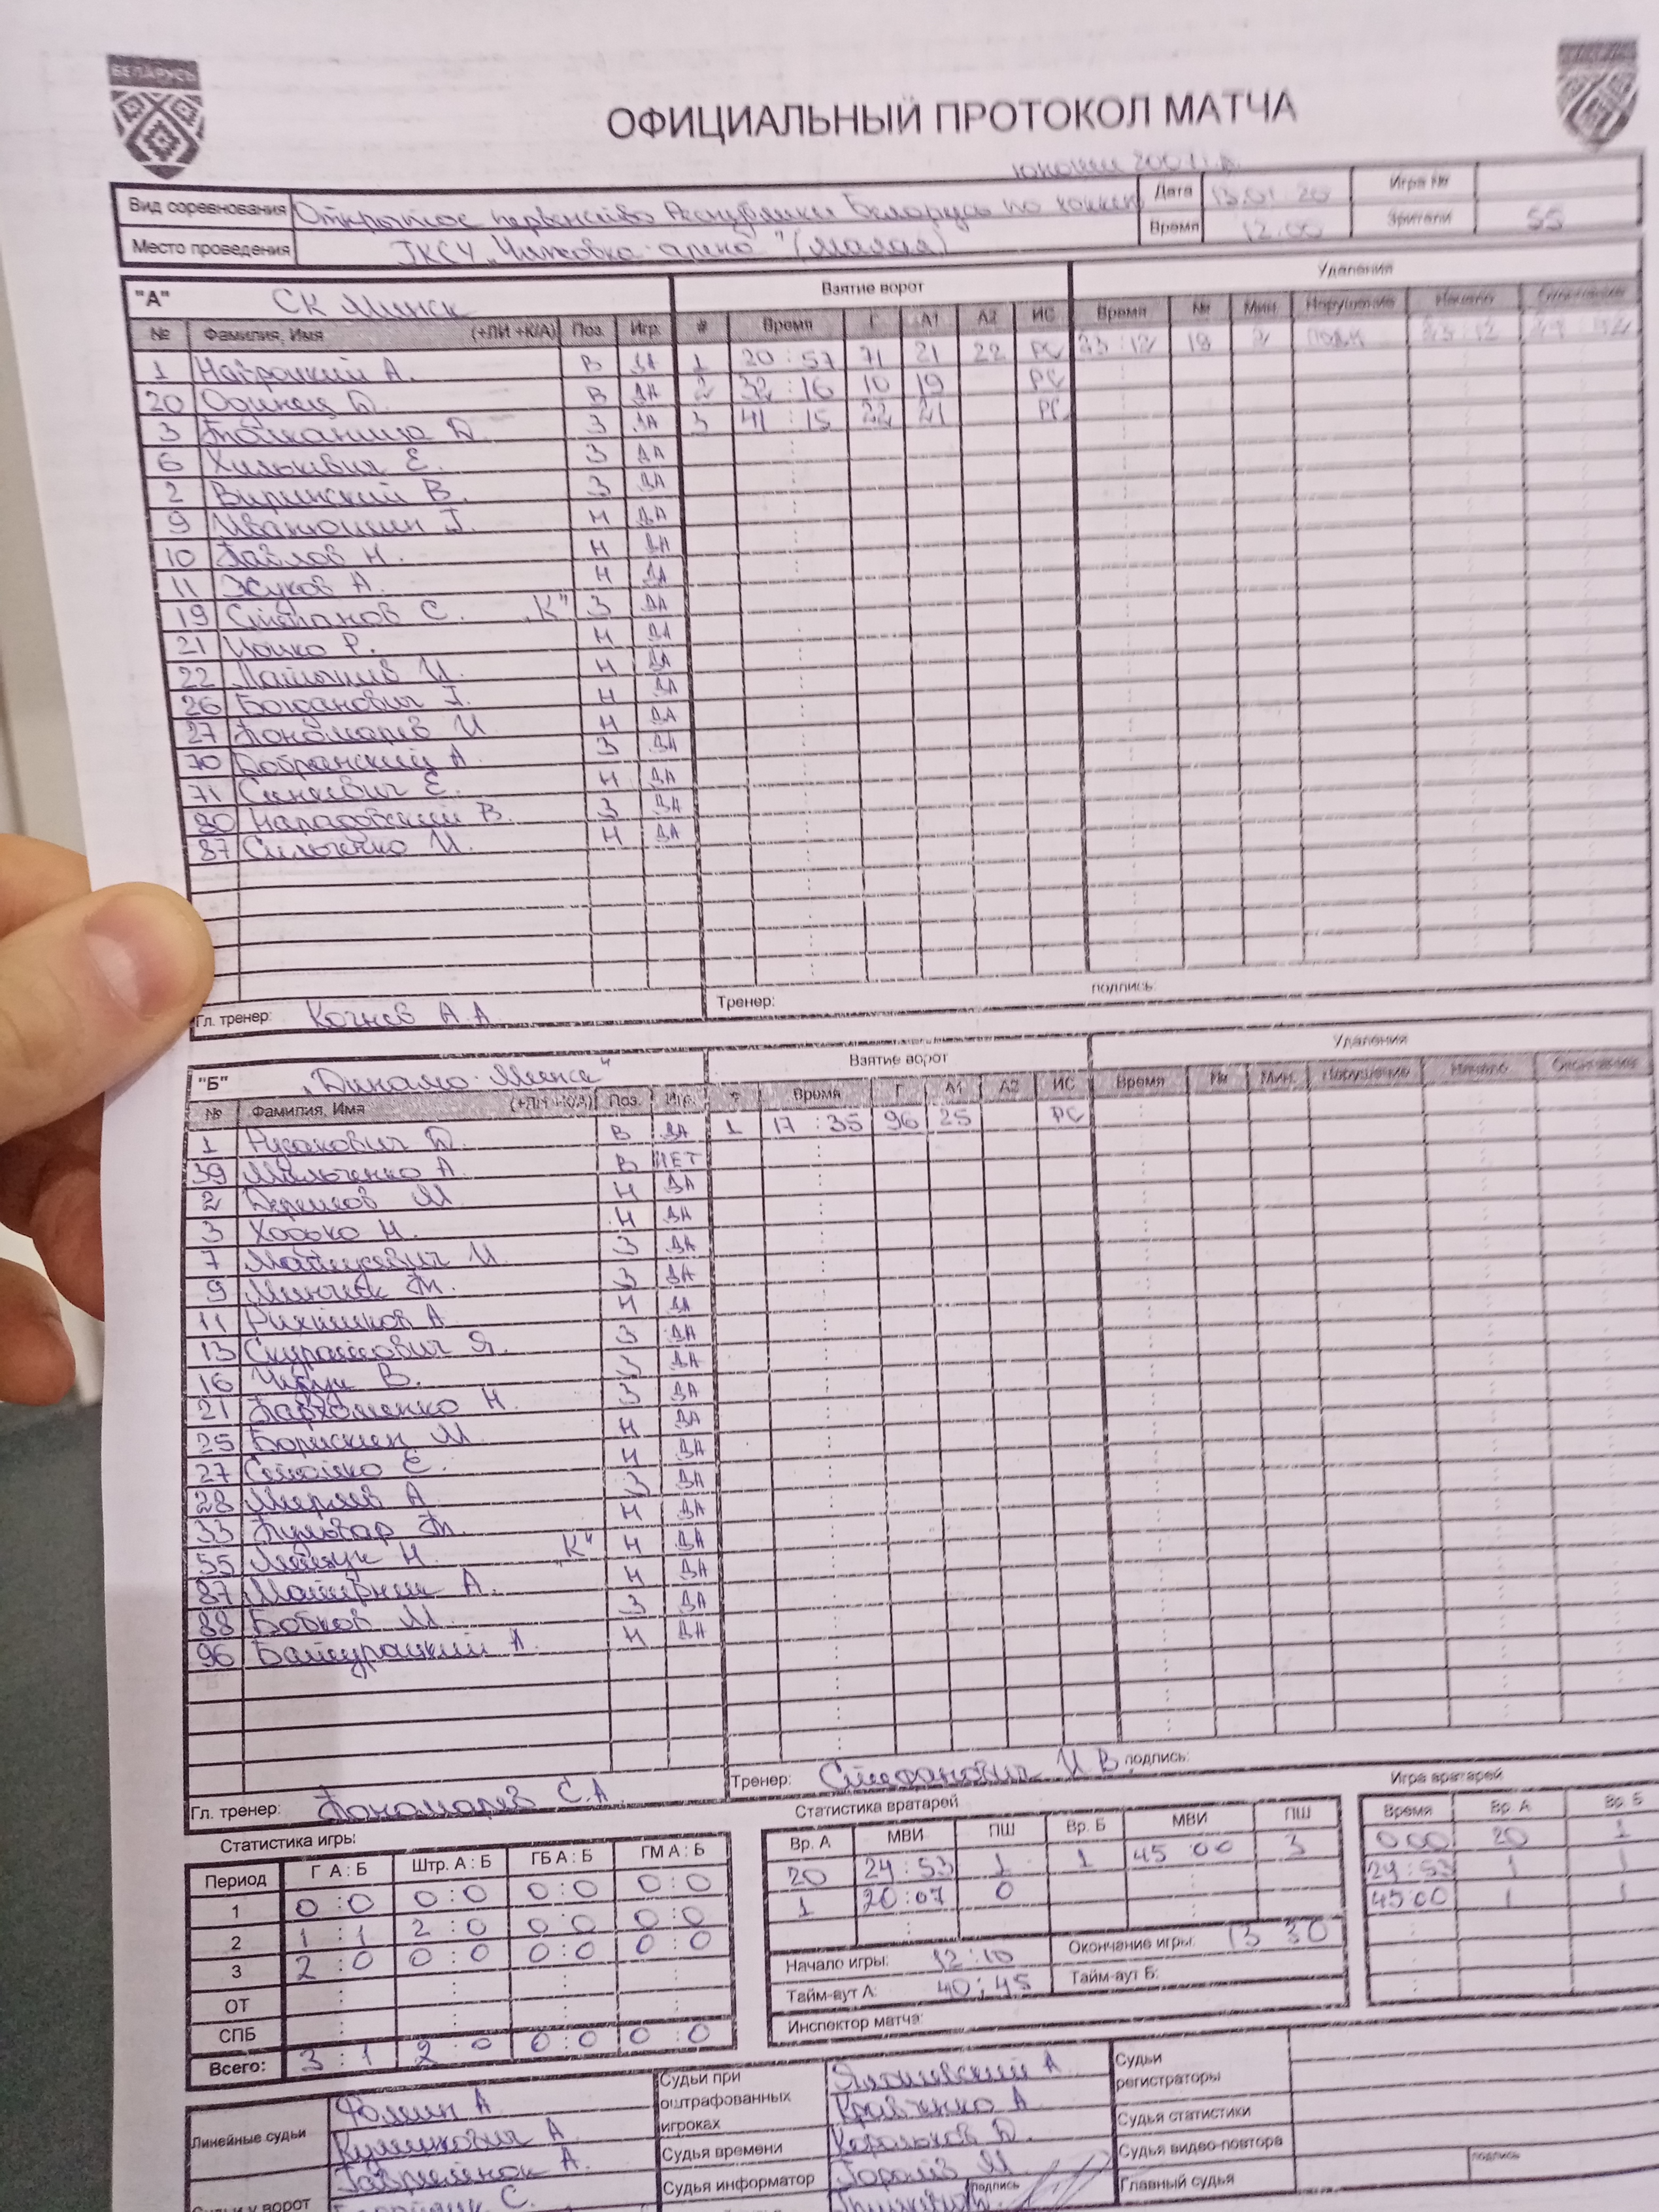 БЕЛАРУСЬ
ОФИЦИАЛЬНЫЙ ПРОТОКОЛ МАТЧА
юноши 2007 г.р.
Вид соревнования Открытое первенство Республики Беларусь по хоккею Дата 13.01.20 Игра №
Место проведения ГКСУ "Чижовка-арена" (малая) Время 12.00 Зрители 55
"А" СК Минск Взятие ворот Удаления
№ Фамилия, Имя (+ЛИ +К/А) Поз. Игр. # Время Г А1 А2 ИС Время № Мин. Нарушение Начало Окончание
1 Навроцкий А. В ДА 1 20:57 71 21 22 РС 23:12 19 2 23:12
20 Одинец Б. В ДА 2 32:16 10 19 РС
3 Д. З ДА 3 41:15 22 21 РС
6 Хилькевич Е. З ДА
2 В. З ДА
9 Иванюшин Г. Н ДА
10 Павлов Н. Н ДА
11 Жуков А. Н ДА
19 Степанов С. "К" З ДА
21 Цойко Р. Н ДА
22 И. Н ДА
26 Богданович Г. Н ДА
27 Пономарев И. Н ДА
70 Добрянский А З ДА
71 Синкевич Е. Н ДА
80 В. З ДА
87 Сильченко И. Н ДА
Гл. тренер: Кочнев А.А Тренер: подпись:
"Б" "Динамо-Минск" Взятие ворот Удаления
№ Фамилия, Имя (+ЛИ +К/А) Поз. Игр. # Время Г А1 А2 ИС Время № Мин. Нарушение Начало Окончание
1 Русакович Д. В ДА 1 17:35 96 25 РС
39 Мильченко А. В НЕТ
2 М. Н ДА
3 Хорько Н. Н ДА
7 Мацукевич И. З ДА
9 Минчик Т. З ДА
11 А Н ДА
13 Скуратович Я. З ДА
16 В. З ДА
21 Пархоменко Н. З ДА
25 Борискин М. Н ДА
27 Е. Н ДА
28 А З ДА
33 Т. Н ДА
55 Н. "К" Н ДА
87 А. Н ДА
88 Бобков М. З ДА
96 А. Н ДА
Гл. тренер: Пономарев С.А. Тренер: Стефанович И.В. подпись:
Статистика игры: Статистика вратарей Игра вратарей
Период Г А : Б Штр. А : Б ГБ А : Б ГМ А : Б Вр. А МВИ ПШ Вр. Б МВИ ПШ Время Вр. А Вр. Б
1 0:0 0:0 0:0 0:0 20 24:53 1 1 45 00 3 0:00 20 1
2 1:1 2:0 0:0 0:0 1 20:07 0 24:53 1 1
3 2:0 0:0 0:0 0:0 45:00 1 1
ОТ Начало игры: 12:10 Окончание игры: 13 30
СПБ Тайм-аут А: 40:45 Тайм-аут Б:
Всего: 3:1 2:0 0:0 0:0 Инспектор матча:
Линейные судьи Фомин А Судьи при оштрафованных игроках А. Судьи регистраторы
А. Кравченко А
Гавриленок А. Судья времени Корольков Д. Судья статистики
Судьи у ворот С. Судья информатор М. Судья видео-повтора
подпись Главный судья подпись